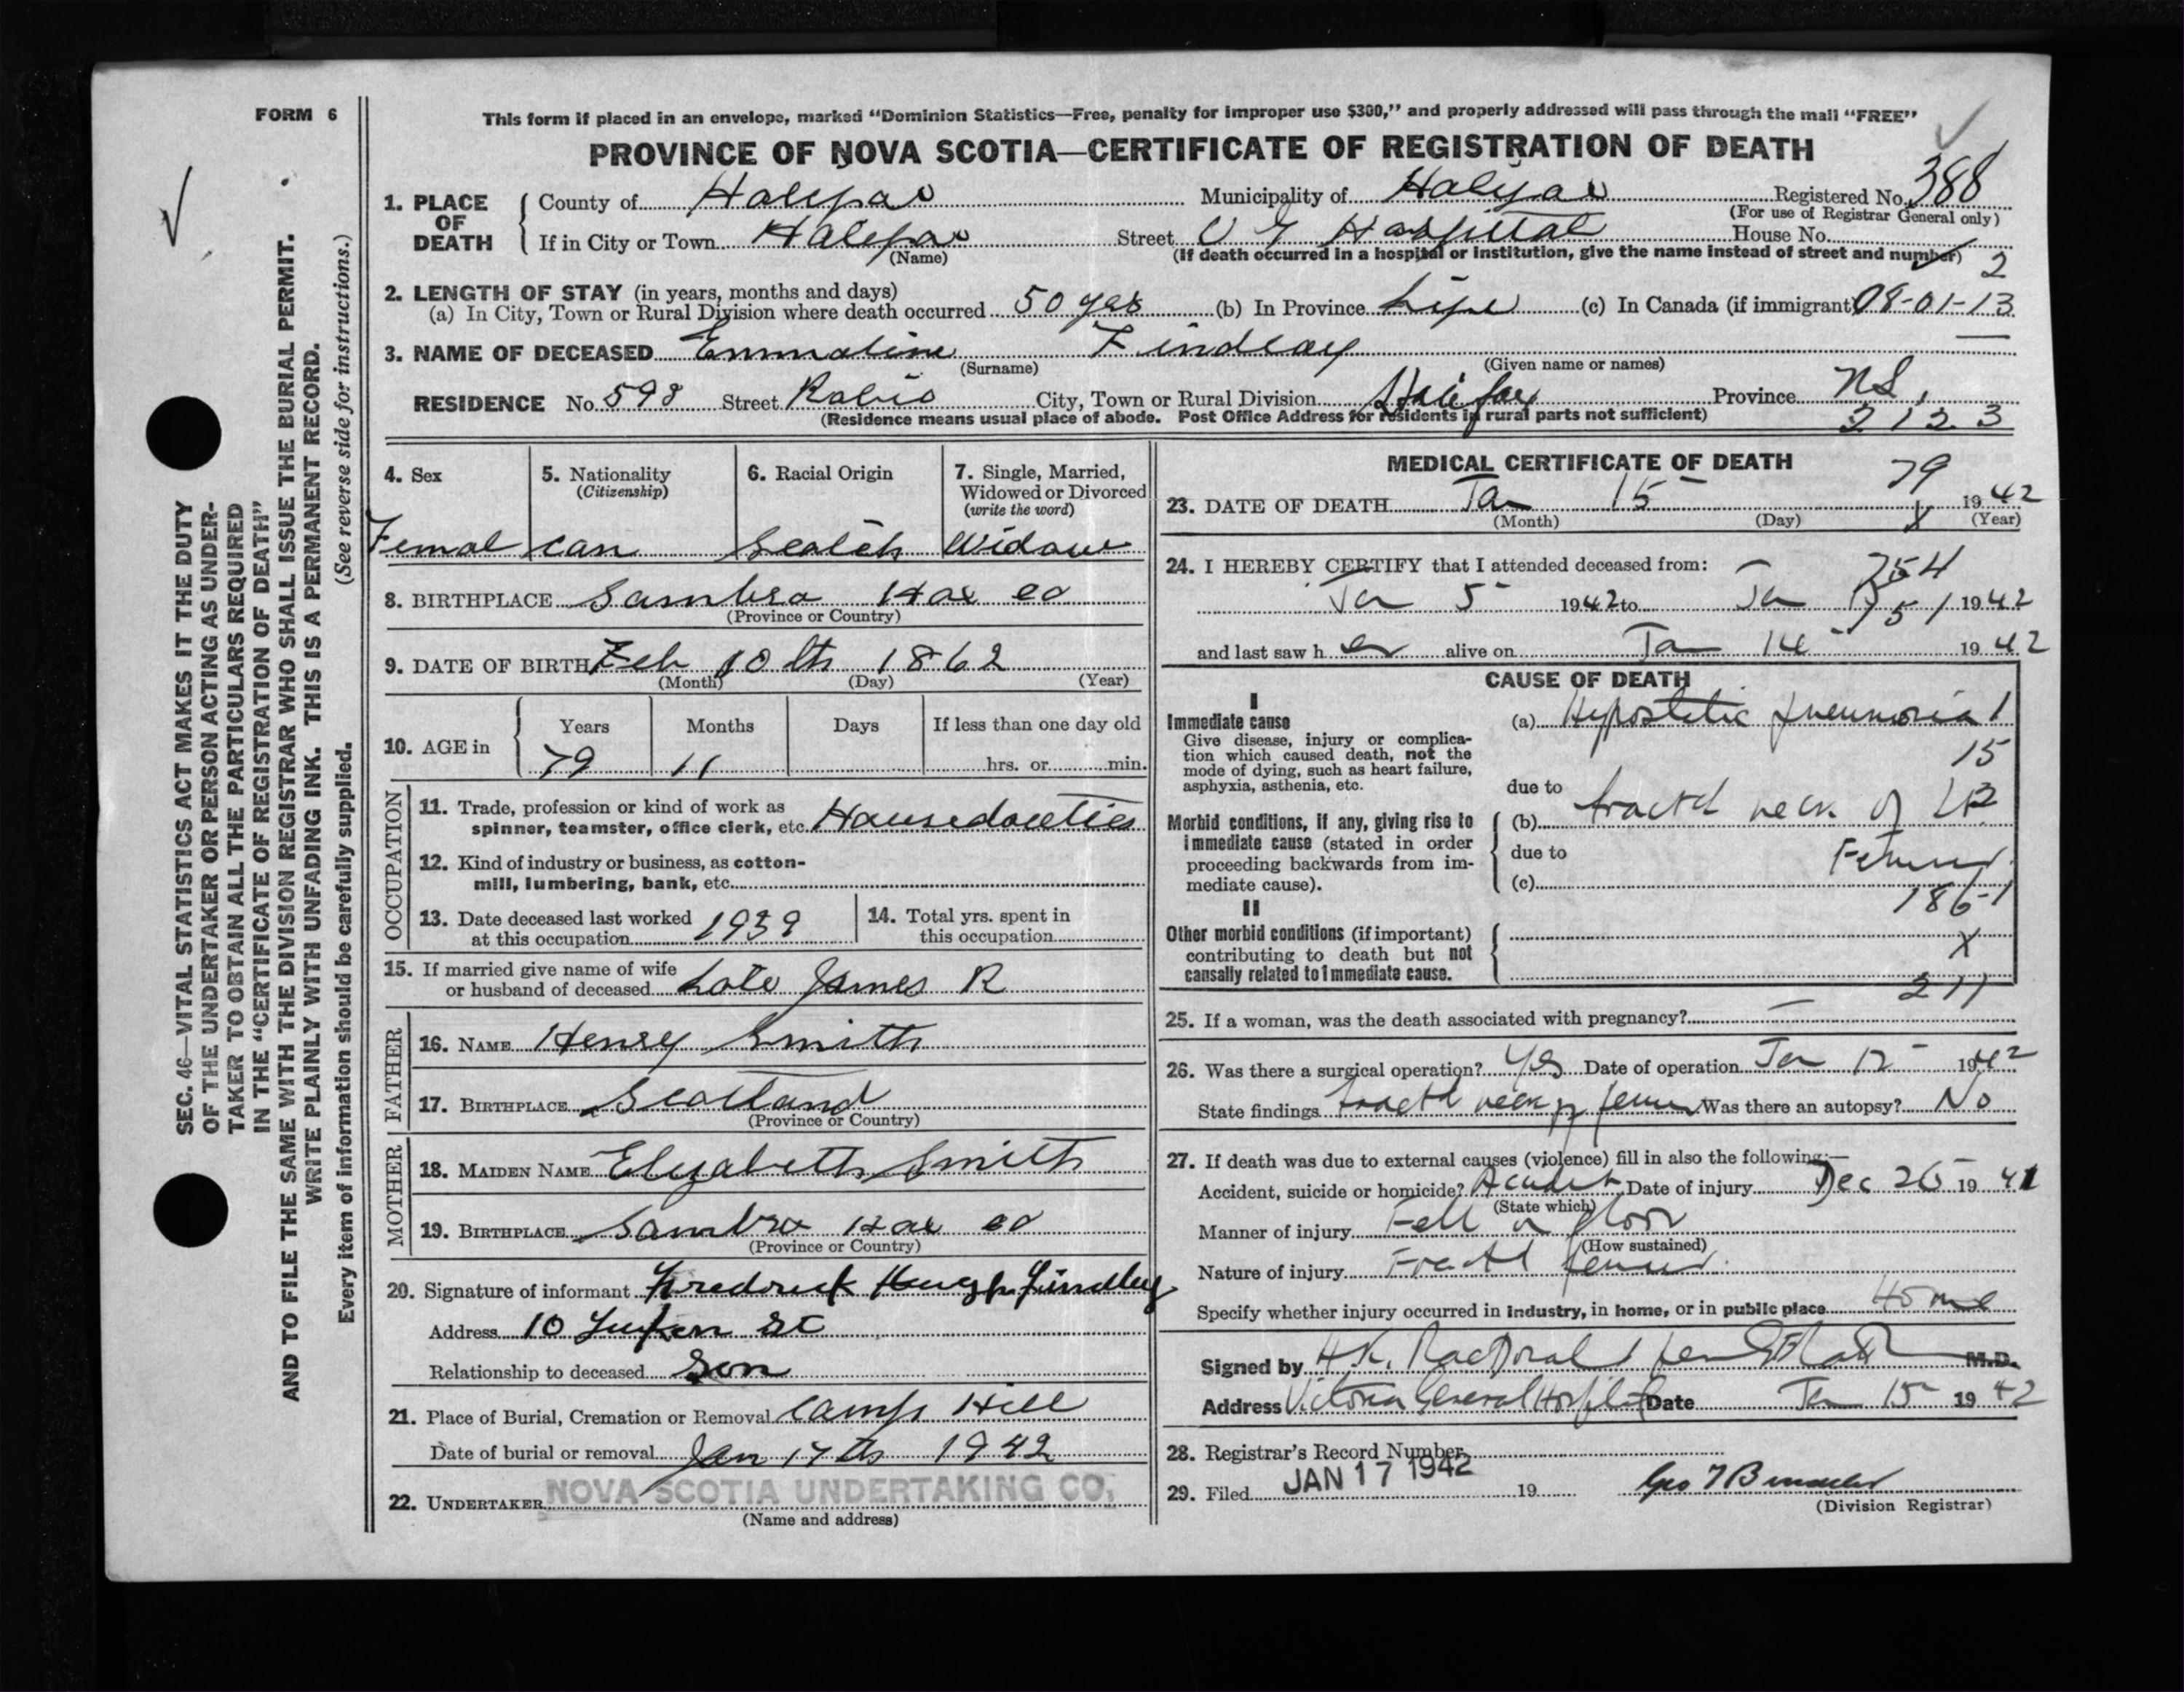 FORM 6
This form if placed in an envelope, marked "Dominion Statistics—Free, penalty for improper use $300," and properly addressed will pass through the mail "FREE"
PROVINCE OF NOVA SCOTIA—CERTIFICATE OF REGISTRATION OF DEATH
1. PLACE OF DEATH
County of Halifax Municipality of Halifax Registered No. 388
(For use of Registrar General only)
If in City or Town Halifax Street V G Hospital House No.
(Name) (If death occurred in a hospital or institution, give the name instead of street and number) 2
2. LENGTH OF STAY (in years, months and days)
(a) In City, Town or Rural Division where death occurred 50 yrs (b) In Province Life (c) In Canada (if immigrant) 08-01-13
3. NAME OF DECEASED Emmaline Findlay
(Surname) (Given name or names)
RESIDENCE No. 598 Street City, Town or Rural Division Halifax Province NS,
(Residence means usual place of abode. Post Office Address for residents in rural parts not sufficient) 2123
4. Sex
Femal
5. Nationality
(Citizenship)
can
6. Racial Origin
Scotch
7. Single, Married,
Widowed or Divorced
(write the word)
Widow
8. BIRTHPLACE Sambro Hax co
(Province or Country)
9. DATE OF BIRTH Feb 10th 1862
(Month) (Day) (Year)
10. AGE in
Years Months Days If less than one day old
79 11 hrs. or min.
OCCUPATION
11. Trade, profession or kind of work as
spinner, teamster, office clerk, etc. Housedouties
12. Kind of industry or business, as cotton-
mill, lumbering, bank, etc.
13. Date deceased last worked
at this occupation 1939
14. Total yrs. spent in
this occupation
15. If married give name of wife
or husband of deceased Late James R
FATHER
16. NAME Henry Smith
17. BIRTHPLACE Scotland
(Province or Country)
MOTHER
18. MAIDEN NAME Elizabeth Smith
19. BIRTHPLACE Sambro Hax co
(Province or Country)
20. Signature of informant Fredrick Hugh Findlay
Address 10 St
Relationship to deceased Son
21. Place of Burial, Cremation or Removal Camp Hill
Date of burial or removal Jan 17th 1942
22. UNDERTAKER NOVA SCOTIA UNDERTAKING CO,
(Name and address)
MEDICAL CERTIFICATE OF DEATH
79
23. DATE OF DEATH Jan 15 1942
(Month) (Day) X (Year)
24. I HEREBY CERTIFY that I attended deceased from: 254
Jan 5 1942 to Jan 15 1942
and last saw her alive on Jan 14 1942
CAUSE OF DEATH
I
Immediate cause
Give disease, injury or complica-
tion which caused death, not the
mode of dying, such as heart failure,
asphyxia, asthenia, etc.
(a) Hypostatic pneumonia 1
15
due to
Morbid conditions, if any, giving rise to
immediate cause (stated in order
proceeding backwards from im-
mediate cause).
(b) fractd neck of
due to Femur
(c)
186-1
II
Other morbid conditions (if important)
contributing to death but not
causally related to immediate cause.
X
211
25. If a woman, was the death associated with pregnancy? —
26. Was there a surgical operation? Yes Date of operation Jan 12 1942
State findings fractd neck of femur Was there an autopsy? No
27. If death was due to external causes (violence) fill in also the following:—
Accident, suicide or homicide? Accident Date of injury Dec 26 1941
(State which)
Manner of injury Fell on floor
(How sustained)
Nature of injury Fractd femur
Specify whether injury occurred in industry, in home, or in public place Home
Signed by H.K. MacDonald M.D.
Address Victoria General Hospital Date Jan 15 1942
28. Registrar's Record Number
29. Filed JAN 17 1942 19
(Division Registrar)
SEC. 46—VITAL STATISTICS ACT MAKES IT THE DUTY
OF THE UNDERTAKER OR PERSON ACTING AS UNDER-
TAKER TO OBTAIN ALL THE PARTICULARS REQUIRED
IN THE "CERTIFICATE OF REGISTRATION OF DEATH"
AND TO FILE THE SAME WITH THE DIVISION REGISTRAR WHO SHALL ISSUE THE BURIAL PERMIT.
WRITE PLAINLY WITH UNFADING INK. THIS IS A PERMANENT RECORD.
Every item of information should be carefully supplied. (See reverse side for instructions.)